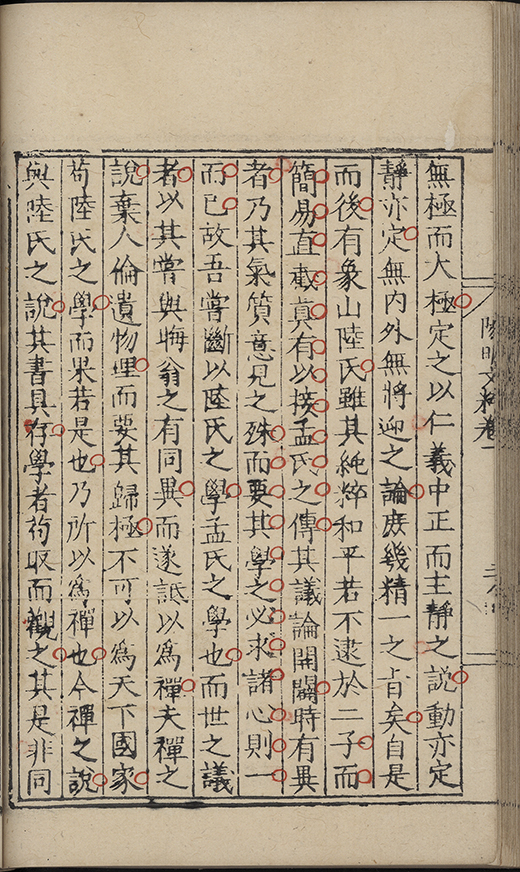 陽明文粹卷一
無極而大極定之以仁義中正而主静之説動亦定
静亦定無内外無將迎之論庻幾精一之㫖矣自是
而後有象山陸氏雖其純粹和平若不逮於二子而
簡易直截真有以接孟氏之傳其議論開闔時有異
者乃其氣質意見之殊而要其學之必求諸心則一
而已故吾嘗斷以陸氏之學孟氏之學也而世之議
者以其嘗與晦翁之有同異而遂詆以為禪夫禪之
説棄人倫遺物理而要其歸極不可以為天下國家
苟陸氏之學而果若是也乃所以為禪也今禪之說
與陸氏之說其書具存學者苟取而觀之其是非同